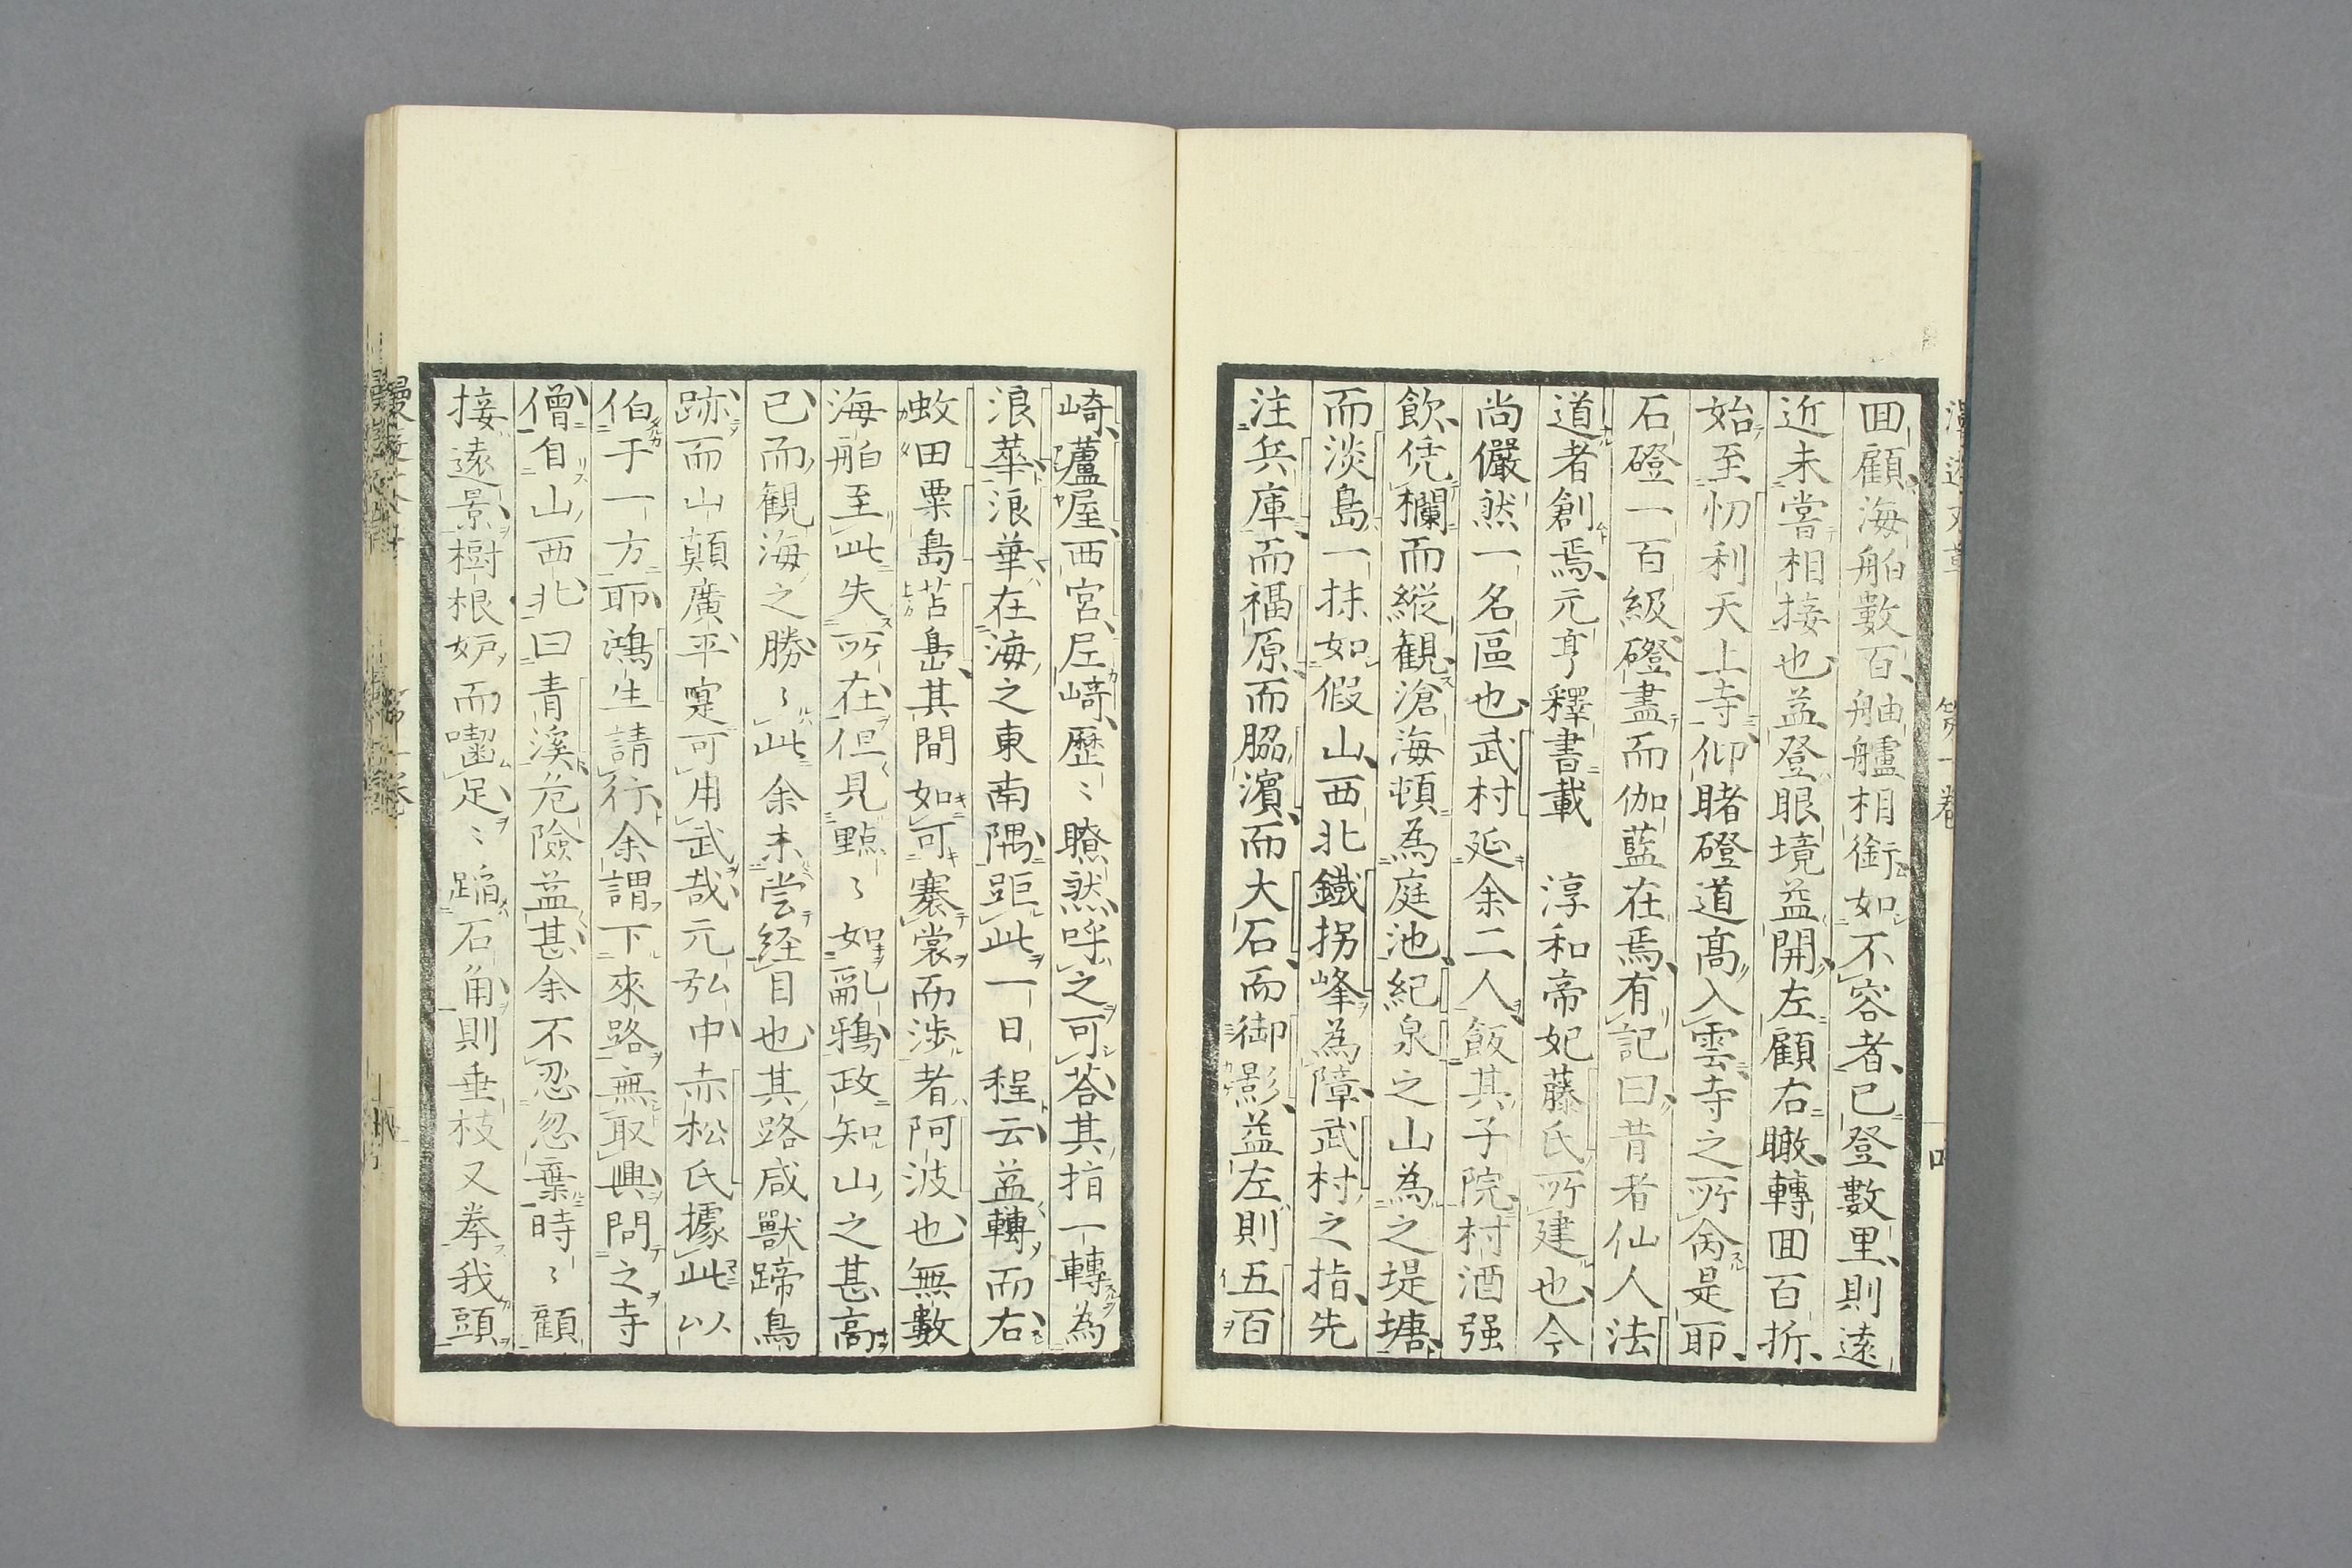 回顧海舶數百舳艫相銜如不容者已登數里則遠
近未嘗相接也益登眼境益開左顧右瞰轉回百折
始至忉利天上寺仰睹磴道髙入雲寺之所㒺是耶
石磴一百級磴盡而伽藍在焉有記曰昔者仙人法
道者創焉元亨釋書載　淳和帝妃藤氏所建也今
尚儼然一名區也武村延余二人飯其子院村酒强
飲凭欄而縱觀滄海頓為庭池紀泉之山為之堤塘
而淡島一抹如假山西北鐵拐峰為障武村之指先
注兵庫而福原而脇濱而大石而御影益左則五百
崎蘆屋西宮尼崎歷〻瞭然呼之可荅其指一轉為
浪華浪華在海之東南隅距此一日程云益轉而右
蚊田粟島苫島其間如可褰裳而渉者阿波也無數
海舶至此失所在但見點〻如亂鴉政知山之甚高
已而觀海之勝〻此余未尝経目也其路咸獸蹄鳥
跡而山顛廣平寔可用武哉元弘中赤松氏據此以
伯于一方耶鴻生請行余謂下來路無取興問之寺
僧自山西北曰青溪危險益甚余不忍忽棄時〻顧
接遠景樹根妒而嚙足〻蹈石角則垂枝又拳我頭